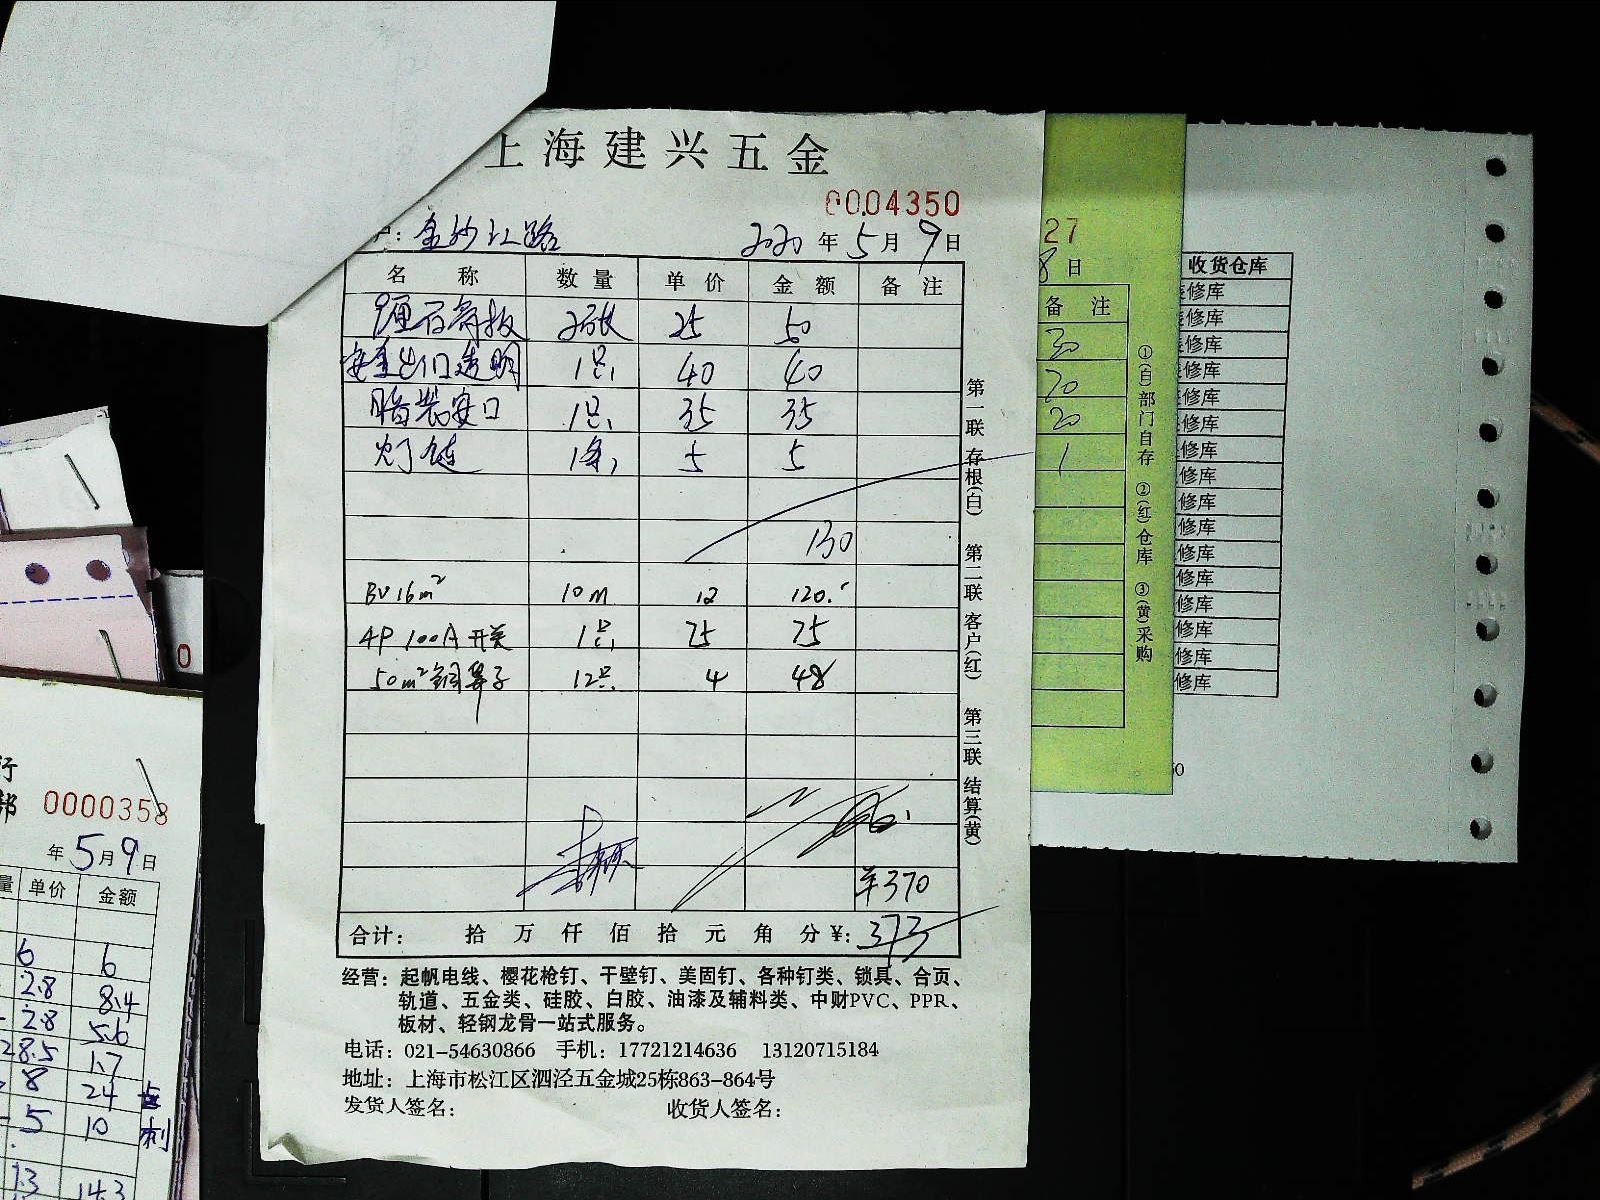 上海建兴五金
0004350
户: 金沙江路 2020 年 5 月 9 日
名 称 数 量 单 价 金 额 备 注
石膏板 2张 25 50
安全出门透明 1只 40 40
暗装 口 1只 35 35
灯链 1条 5 5
130
BV 16m² 10M 12 120.
4P 100A 开关 1只 75 75
50m²铜鼻子 12只 4 48
¥370
合计: 拾 万 仟 佰 拾 元 角 分 ¥: 373
经营: 起帆电线、樱花枪钉、干壁钉、美固钉、各种钉类、锁具、合页、
轨道、五金类、硅胶、白胶、油漆及辅料类、中财PVC、PPR、
板材、轻钢龙骨一站式服务。
电话: 021-54630866 手机: 17721214636 13120715184
地址: 上海市松江区泗泾五金城25栋863-864号
发货人签名: 收货人签名:
第一联 存根(白) 第二联 客户(红) 第三联 结算(黄)
27
8 日
备 注
30
20
20
1
①(白)部门自存 ②(红)仓库 ③(黄)采购
收货仓库
修库
修库
修库
修库
修库
修库
修库
修库
修库
修库
修库
修库
修库
修库
修库
修库
0
行
部 0000358
年 5 月 9 日
量 单价 金额
6 6
2.8 8.4
2.8 5.6
28.5 1.7
8 24
5 10
13 14.3